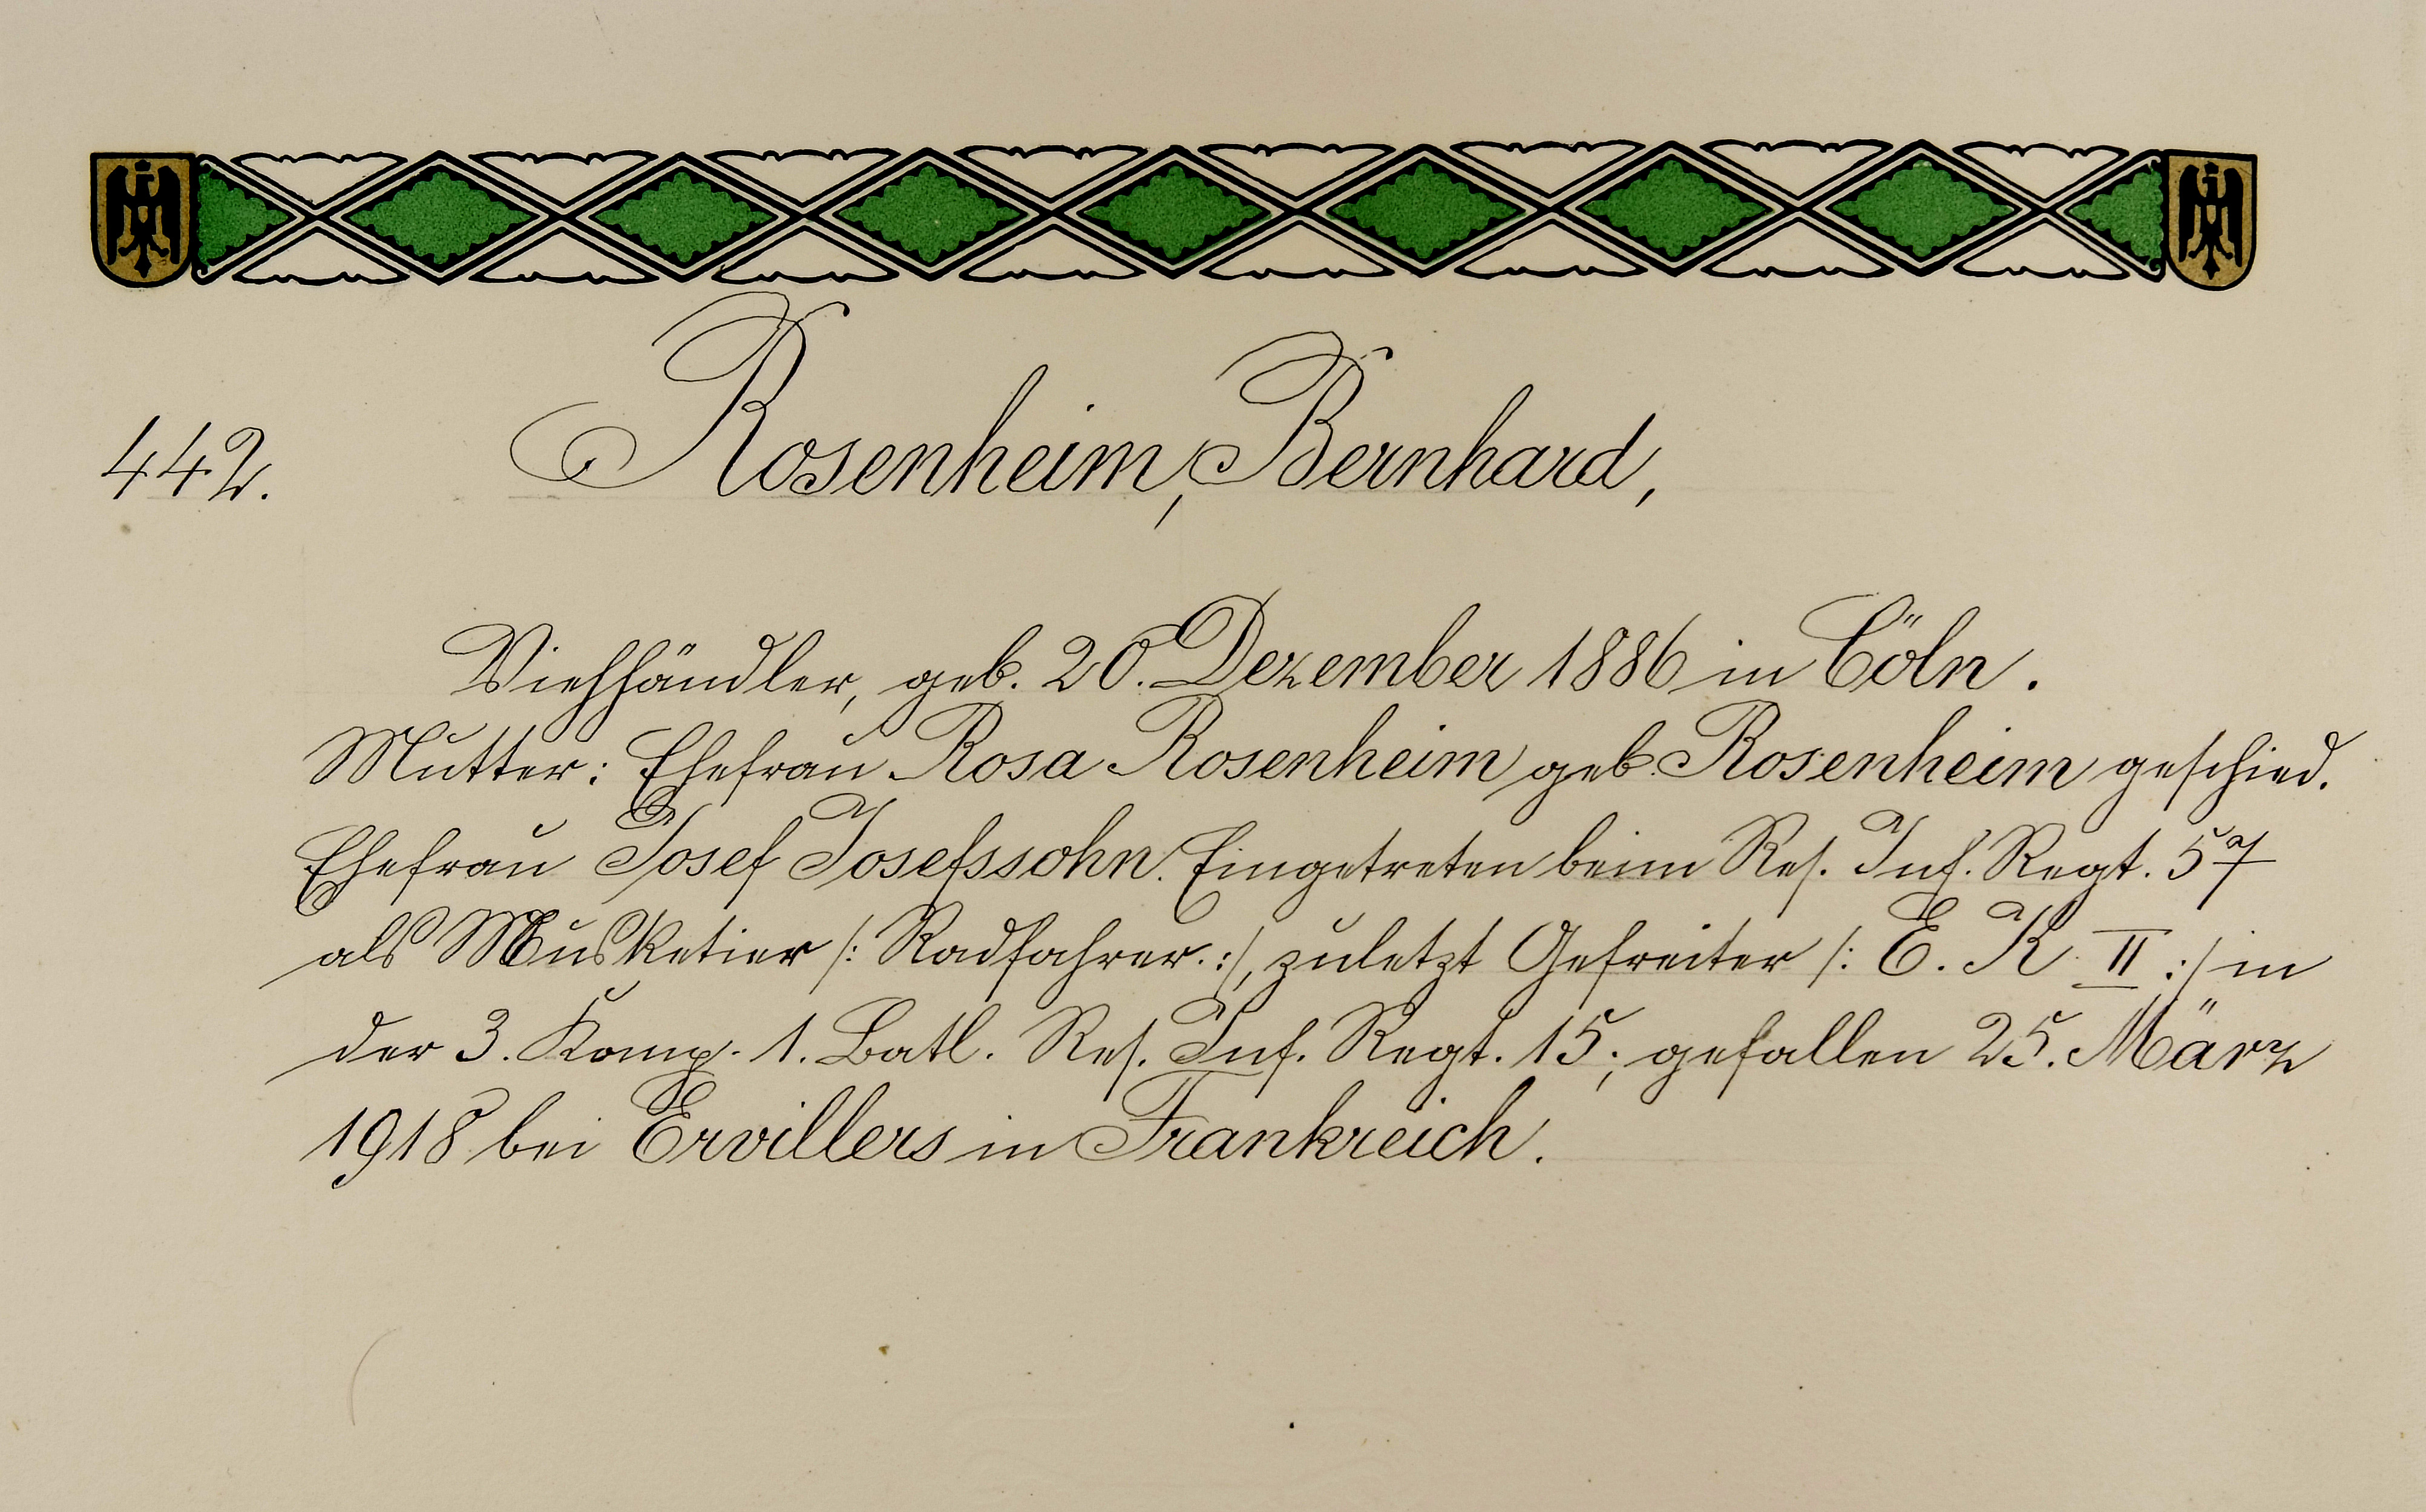 442. Rosenheim, Bernhard,
Viehhändler, geb. 20. Dezember 1886 in Cöln.
Mutter: Ehefrau Rosa Rosenheim geb. Rosenheim geschied.
Ehefrau Josef Josefssohn. Eingetreten beim Res. Inf. Regt. 57
als Musketier /: Radfahrer. :/, zuletzt Gefreiter /: E. K. II :/ in
der 3. Komp. 1. Batl. Res. Inf. Regt. 15; gefallen 25. März
1918 bei Ervillers in Frankreich.